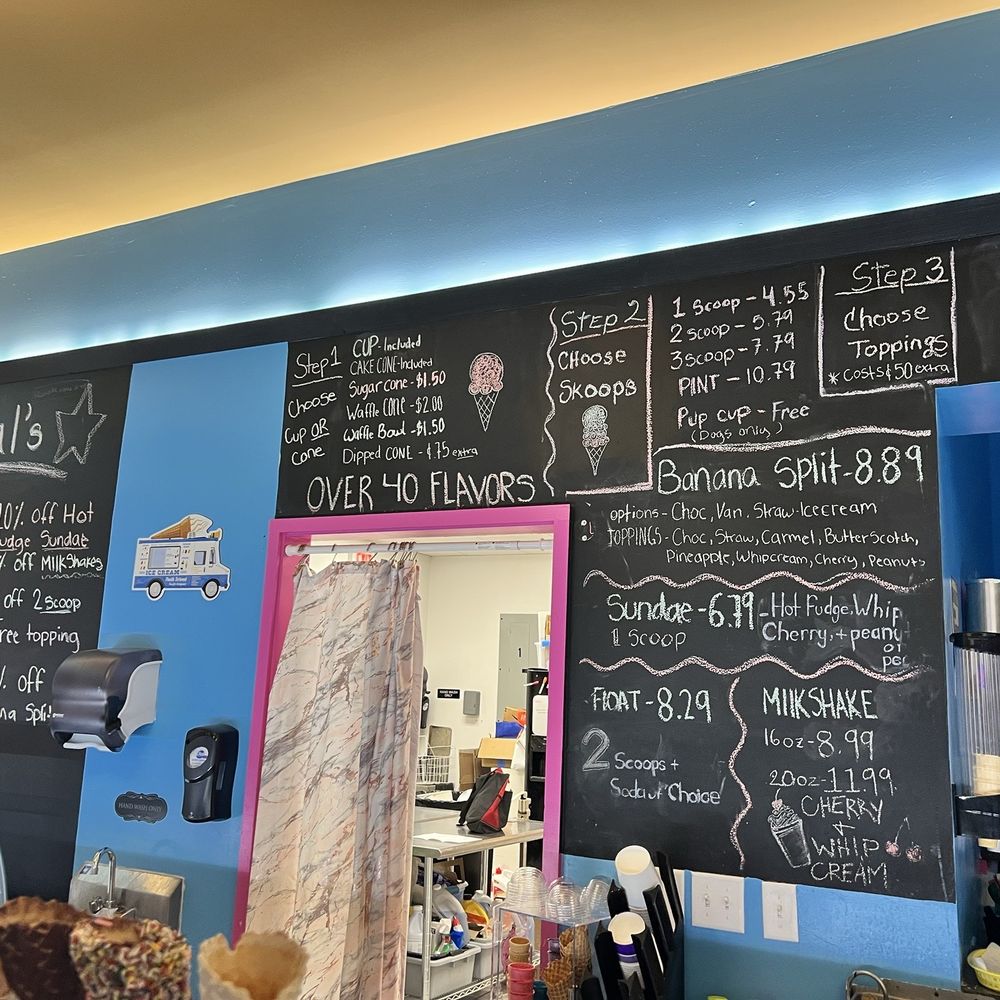 al's
10% off Hot
udge Sundae
% off Milkshakes
off 2 scoop
ree topping
% off
na Split
ICE CREAM
HAND WASH ONLY
Step 1
Choose
Cup OR
Cone
CUP - Included
CAKE CONE - Included
Sugar cone - $1.50
Waffle CONE - $2.00
Waffle Bowl - $1.50
Dipped CONE - $.75 extra
OVER 40 FLAVORS
STEP 2
CHOOSE
SKOOPS
1 Scoop - 4.55
2 scoop - 5.79
3 scoop - 7.79
PINT - 10.79
Pup cup - Free
(Dogs only)
Step 3
Choose
Toppings
* Costs $.50 extra
Banana Split - 8.89
options - Choc, Van, Straw-Icecream
TOPPINGS - Choc, Straw, Carmel, ButterScotch,
Pineapple, Whipcream, Cherry, Peanuts
Sundae - 6.79
1 Scoop
- Hot Fudge, Whip
Cherry, + peanu
or
pec
FLOAT - 8.29
2 Scoops +
Soda of Choice
MILKSHAKE
16oz - 8.99
20oz - 11.99
CHERRY
+
WHIP
CREAM
HAND WASH
ONLY
1